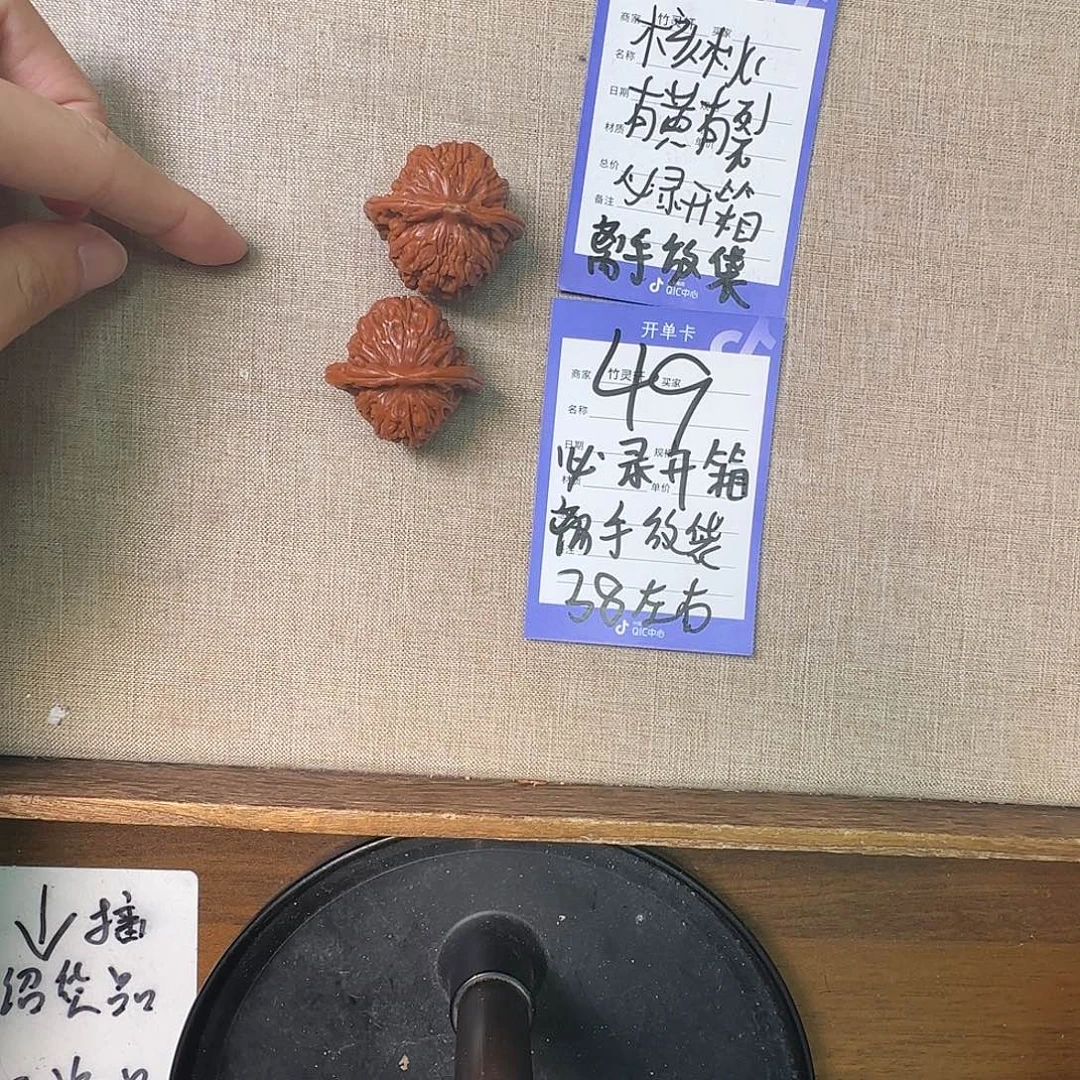 商家 竹灵轩 买家
核桃
名称
日期
有黄有裂
材质 单价
总价
必录开箱
备注
离手放袋
QIC中心
开单卡
49
商家 竹灵轩 买家
名称
日期 规格
必录开箱
材质 单价
离手放袋
38左右
QIC中心
绍货品